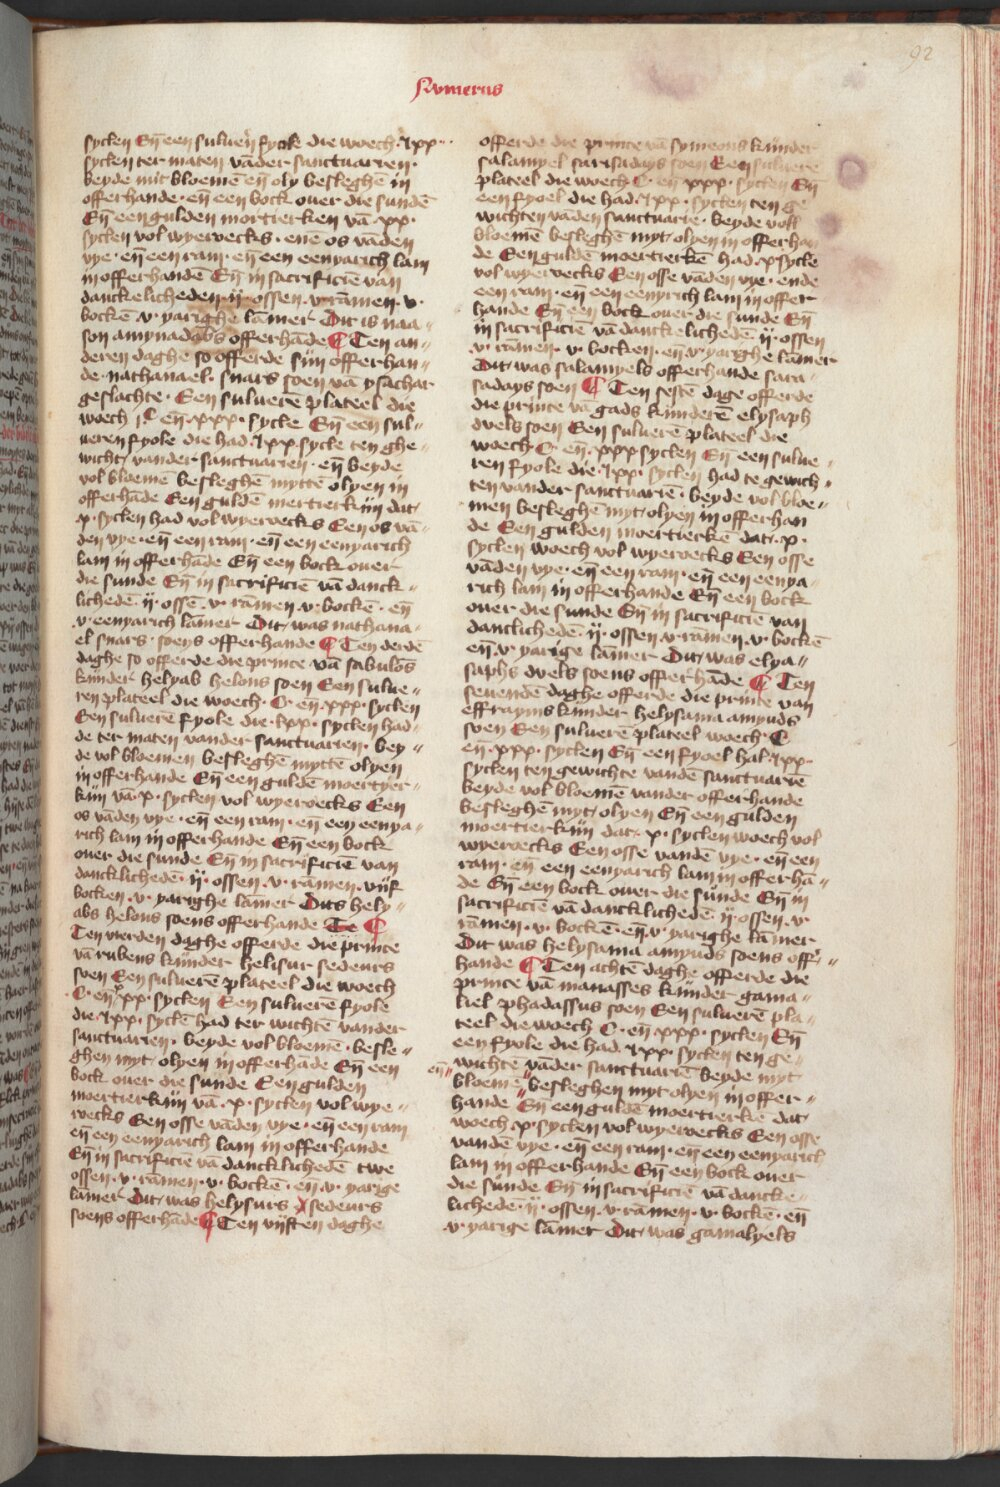 92
Numerus
sycken Eñ een suluerē fyole die woech · lxx ·
sycken ter maten vāder sanctuarien ·
beyde mit bloemē eñ oly besleghē in
offerhande · eñ een bock ouer die sundē
Eñ een gulden mortierken vā · xx ·
sycken vol wyeroecks · enē os vāden
vye · eñ een ram · eñ een eenyarich lam
in offerhandē Eñ in sacrificiē van
danckelicheden · ij · ossen · v rāmen · v ·
bockē v · yarighe lāmer Dit is naa //
son amynadabs offerhāde ¶ Ten an //
deren daghe so offerde sijn offerhan //
de · nathanael · suars soen vā ysachar
geslachte · Een suluerē plateel die
woech · C · eñ · xxx · sycke Eñ een sul //
ueren fyole die had · lxx sycke ten ghe //
wicht vander sanctuarien · eñ beyde
vol bloemē besleghē myttē olyen in
offerhāde Een guldē mertierkijn dat
· x · sycken had vol wyeroecks Een os vā //
den vye · eñ een ram · eñ een eenyarich
lam in offerhāde Eñ een bock ouer
die sunde Eñ in sacrificiē vā danck //
lichedē · ij · ossē · v · rāmen · v · bockē · eñ
v · eenyarich lāmer Dit was nathana //
el suars · soens offerhande ¶ Ten derdē
daghe so offerde die prince vā sabulōs
kijnder helyab helons soen Een sulue //
ren plateel die woech · C · eñ · xxx · sycken
Een suluerē fyole die · lxx · sycken had //
de ter maten vander sanctuarien · bey //
de vol bloemen besleghē myttē olyen
in offerhande Eñ een guldē moertyer //
kijn vā · x · sycken vol wyeroecks Een
os vāden vye · eñ een ram · eñ een eenya //
rich lam in offerhande Eñ een bock
ouer die sunde Eñ in sacrificiē van
dancklichedē · ij · ossen · v · rāmen · vijf
bocken · v · yarighe lāmer Dits hely //
abs helons soens offerhande Te ¶
Ten vierden daghe offerde die prince
vā rubens kijnder helisur sedeurs
soen Een suluerē plateel die woech
· C · eñ xxx · sycken Een suluerē fyole
die · lxx · syckē had ter wichtē vander
sanctuarien · beyde vol bloemē · besle //
ghen myt olyen in offerhāde Eñ een
bock ouer die sunde Een gulden
moertierkijn vā · x · sycken vol wye //
roecks Een osse vāden vye · eñ een ram
eñ een eenyarich lam in offerhande
Eñ in sacrificiē vā dancklichedē twe
ossen · v · rāmen · v · bockē · eñ · v · yarige
lāmer Dit was helysurs sedeurs
soens offerhāde ¶ Ten vijften daghe
offerde die prince vā symeons kijnder
salamyel surisadays soen Een suluerē
plateel die woech C · eñ xxx · sycken Eñ
een fyoel die had · lxx · sycken ten ge
wichten vāden sanctuarie · beyde voll
bloemē besleghē myt olyen in offerhan
de Een guldē moertierkē had · x sycke
vol wyeroecks Een osse vāden vye · ende
een ram · eñ een eenyrich lam in offer
hande Eñ een bock ouer die sunde Eñ
in sacrificie vā danckelichedē · ij · ossen
· v · rāmen · v · bocken · eñ v · yarighe lāmer
Dit was salamyels offerhande sura //
sadays soen ¶ Ten sestē dage offerde
die prince vā gads kijnderē elysaph
duels soen Een suluerē plateel die
woech · C · eñ · xxx sycken Eñ een sulue //
ren fyole die · lxx · sycken had te gewich //
ten vander sanctuariē · beyde vol bloe //
men besleghē myt olyen in offerhan
de Een gulden moertierkē dat · x ·
sycken woech vol wyeroecks Een osse
vāden vye · eñ een ram · eñ een eenya //
rich lam in offerhande Eñ een bock
ouer die sunde Eñ in sacrificiē van
danclichedē · ij · ossen · v rāmen · v · bockē
eñ · v · yarige lāmer Dit was elya //
saphs duels soens offerhāde ¶ Ten
seuendē daghe offerde die prince van
effrayms kijnder helysama amyuds
soen Een suluerē plateel woech · C
eñ · xxx · sycken Eñ een fyoel hal · lxx ·
sycken ten gewichte vandē sanctuariē
beyde vol bloemē vander offerhande
besleghē myt olyen Eñ een gulden
moertierkijn dat · x · sycken woech vol
wyeroecks Een osse vandē vye · eñ een
ram · eñ een eenyarich lam in offerhā //
de Eñ een bock ouer die sunde Eñ in
sacrificiē vā dancklichedē · ij · ossen · v
rāmen · v · bockē · eñ · v · yarighe lāmer
Dit was helysama amyuds soens offer //
hande ¶ Ten achtē daghe offerde die
prince vā manasses kijnder gama //
liel phadassus soen Een suluerē pla //
teel die woech C · eñ xxx · sycken Eñ
een fyole die had · lxx · sycken ten ge //
wichtē vāder sanctuariē beyde myt
eñ // bloeme // besleghen myt olyen in offer //
hande Eñ een guldē moertierkē dat
woech · x · sycken vol wyeroecks Een osse
vandē vye · eñ een ram · eñ een eenyarich
lam in offerhande Eñ een bock ouer
die sunde Eñ in sacrificiē vā dancke //
lichedē · ij · ossen · v · rāmen · v · bockē · eñ
· v · yarige lāmer Dit was gamalyels